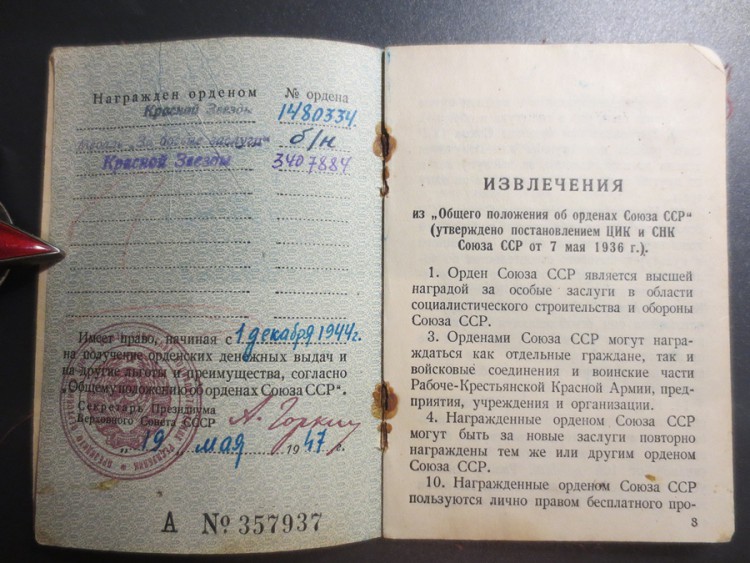 Награжден орденом № ордена
Красной Звезды 1480334.
медаль „За боевые заслуги" б/н
Красной Звезды 3407884
Имеет право, начиная с 1 декабря 1944 г.
на получение орденских денежных выдач и
на другие льготы и преимущества, согласно
„Общему положению об орденах Союза ССР".
Секретарь Президиума
Верховного Совета СССР А. Горкин
„19" мая 1947 г.
А № 357937
ИЗВЛЕЧЕНИЯ
из „Общего положения об орденах Союза ССР"
(утверждено постановлением ЦИК и СНК
Союза ССР от 7 мая 1936 г.).
1. Орден Союза ССР является высшей
наградой за особые заслуги в области
социалистического строительства и обороны
Союза ССР.
3. Орденами Союза ССР могут награ-
ждаться как отдельные граждане, так и
войсковые соединения и воинские части
Рабоче-Крестьянской Красной Армии, пред-
приятия, учреждения и организации.
4. Награжденные орденом Союза ССР
могут быть за новые заслуги повторно
награждены тем же или другим орденом
Союза ССР.
10. Награжденные орденом Союза ССР
пользуются лично правом бесплатного про-
3